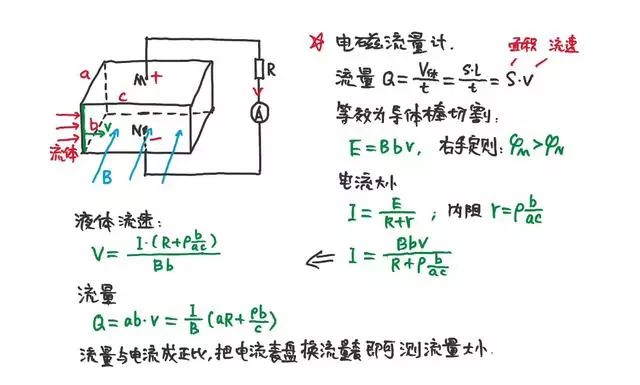 ☆ 电磁流量计.
面积 流速
流量 Q = V体/t = S·L/t = S·v
等效为导体棒切割:
E = Bbv, 右手定则: φM > φN
电流大小
I = E/(R+r) ; 内阻 r = ρ b/ac
⇐ I = Bbv/(R+ρ b/ac)
a
M +
c
R
b
v
N −
A
流体
B
液体流速:
V = I·(R+ρ b/ac)/Bb
流量
Q = ab·v = I/B (aR + ρb/c)
流量与电流成正比, 把电流表盘换流量表即可测流量大小.